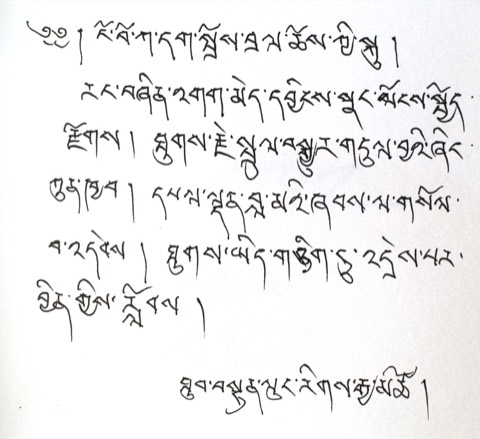 ༄༅། །ངོ་བོ་ཀ་དག་སྤྲོས་བྲལ་ཆོས་ཀྱི་སྐུ །
རང་བཞིན་འགག་མེད་དབྱིངས་སྣང་ལོངས་སྤྱོད་
རྫོགས། ཐུགས་རྗེ་སྤྲུལ་བསྒྱུར་གདུལ་བྱའི་ཞིང་
ཀུན་ཁྱབ། དཔལ་ལྡན་བླ་མའི་ཞབས་ལ་གསོལ་
བ་འདེབས། ཐུགས་ཡིད་གཅིག་ཏུ་འདྲེས་པར་
བྱིན་གྱིས་རློབས །
ཐུབ་བསྟན་ལུང་རིགས་རྒྱ་མཚོ །